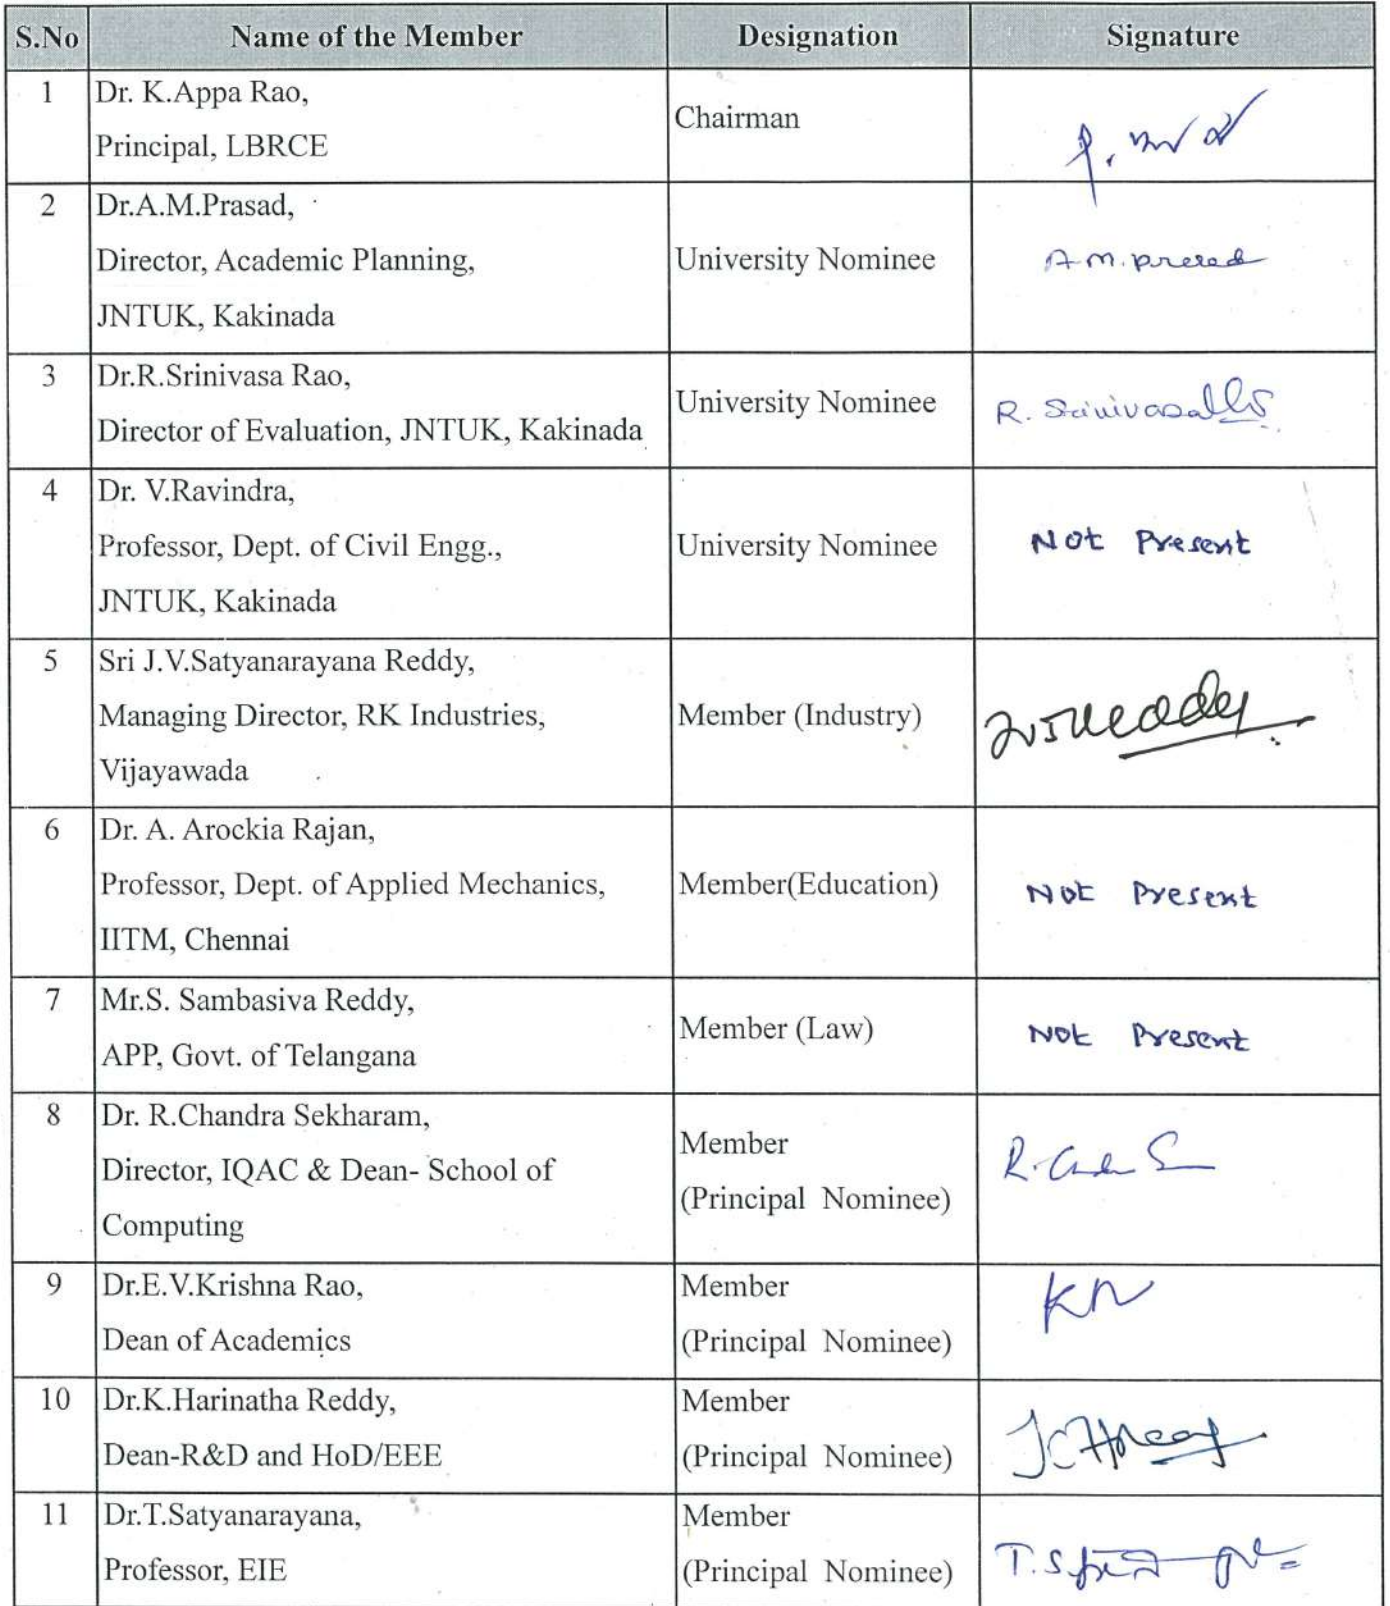 S.No Name of the Member Designation Signature
1 Dr. K.Appa Rao,
Principal, LBRCE
Chairman
2 Dr.A.M.Prasad,
Director, Academic Planning,
JNTUK, Kakinada
University Nominee
A.M.Prasad
3 Dr.R.Srinivasa Rao,
Director of Evaluation, JNTUK, Kakinada
University Nominee
R. Srinivasa
4 Dr. V.Ravindra,
Professor, Dept. of Civil Engg.,
JNTUK, Kakinada
University Nominee
Not Present
5 Sri J.V.Satyanarayana Reddy,
Managing Director, RK Industries,
Vijayawada
Member (Industry)
6 Dr. A. Arockia Rajan,
Professor, Dept. of Applied Mechanics,
IITM, Chennai
Member(Education)
Not Present
7 Mr.S. Sambasiva Reddy,
APP, Govt. of Telangana
Member (Law)
Not Present
8 Dr. R.Chandra Sekharam,
Director, IQAC & Dean- School of
Computing
Member
(Principal Nominee)
9 Dr.E.V.Krishna Rao,
Dean of Academics
Member
(Principal Nominee)
10 Dr.K.Harinatha Reddy,
Dean-R&D and HoD/EEE
Member
(Principal Nominee)
11 Dr.T.Satyanarayana,
Professor, EIE
Member
(Principal Nominee)